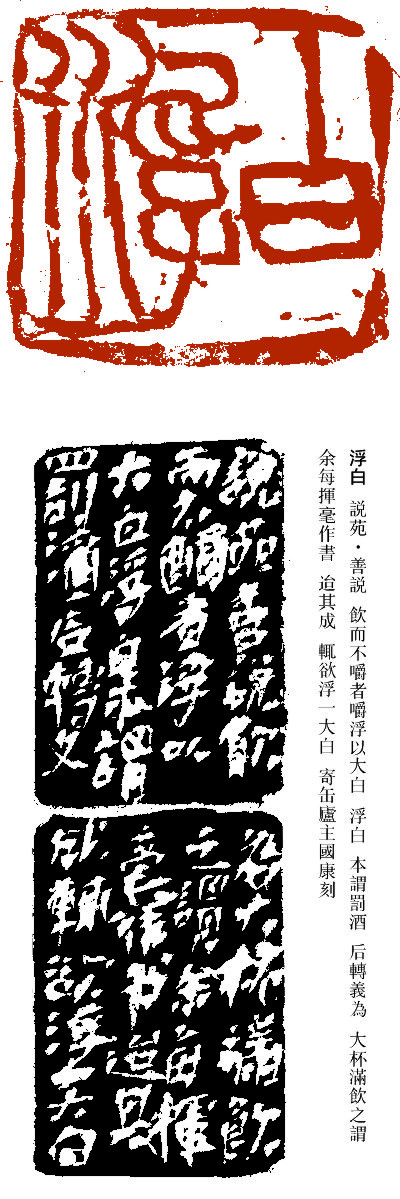 浮白
浮白 説苑・善説 飲而不嚼者嚼浮以大白 浮白 本謂罰酒 后轉義為 大杯滿飲之謂
余每揮毫作書 迨其成 輒欲浮一大白 寄缶廬主國康刻
説苑善説飲
而不釂者浮以
大白浮謂
罰酒后轉义
為大杯滿飲
之謂余每揮
毫作书迨其
成輒欲浮一大白